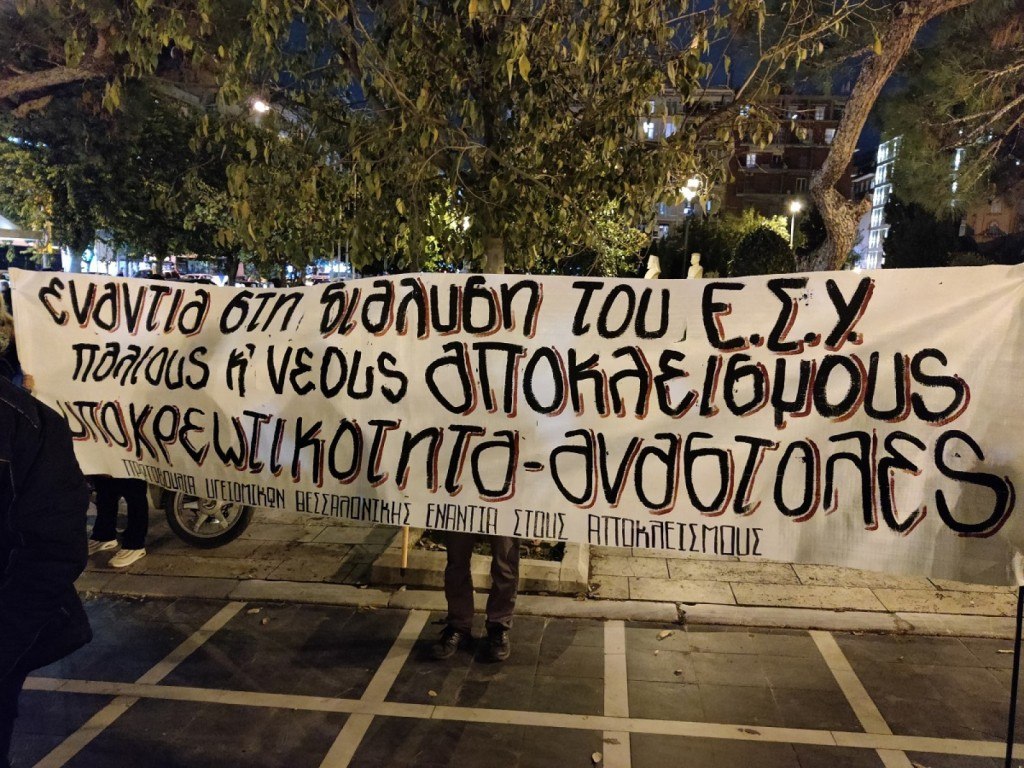 ΕΝΑΝΤΙΑ ΣΤΗ ΔΙΑΛΥΣΗ ΤΟΥ Ε.Σ.Υ.
ΠΑΛΙΟΥΣ Κ' ΝΕΟΥΣ ΑΠΟΚΛΕΙΣΜΟΥΣ
ΥΠΟΚΡΕΩΤΙΚΟΤΗΤΑ-ΑΝΑΣΤΟΛΕΣ
ΠΡΩΤΟΒΟΥΛΙΑ ΥΓΕΙΟΜΙΚΩΝ ΘΕΣΣΑΛΟΝΙΚΗΣ ΕΝΑΝΤΙΑ ΣΤΟΥΣ ΑΠΟΚΛΕΙΣΜΟΥΣ